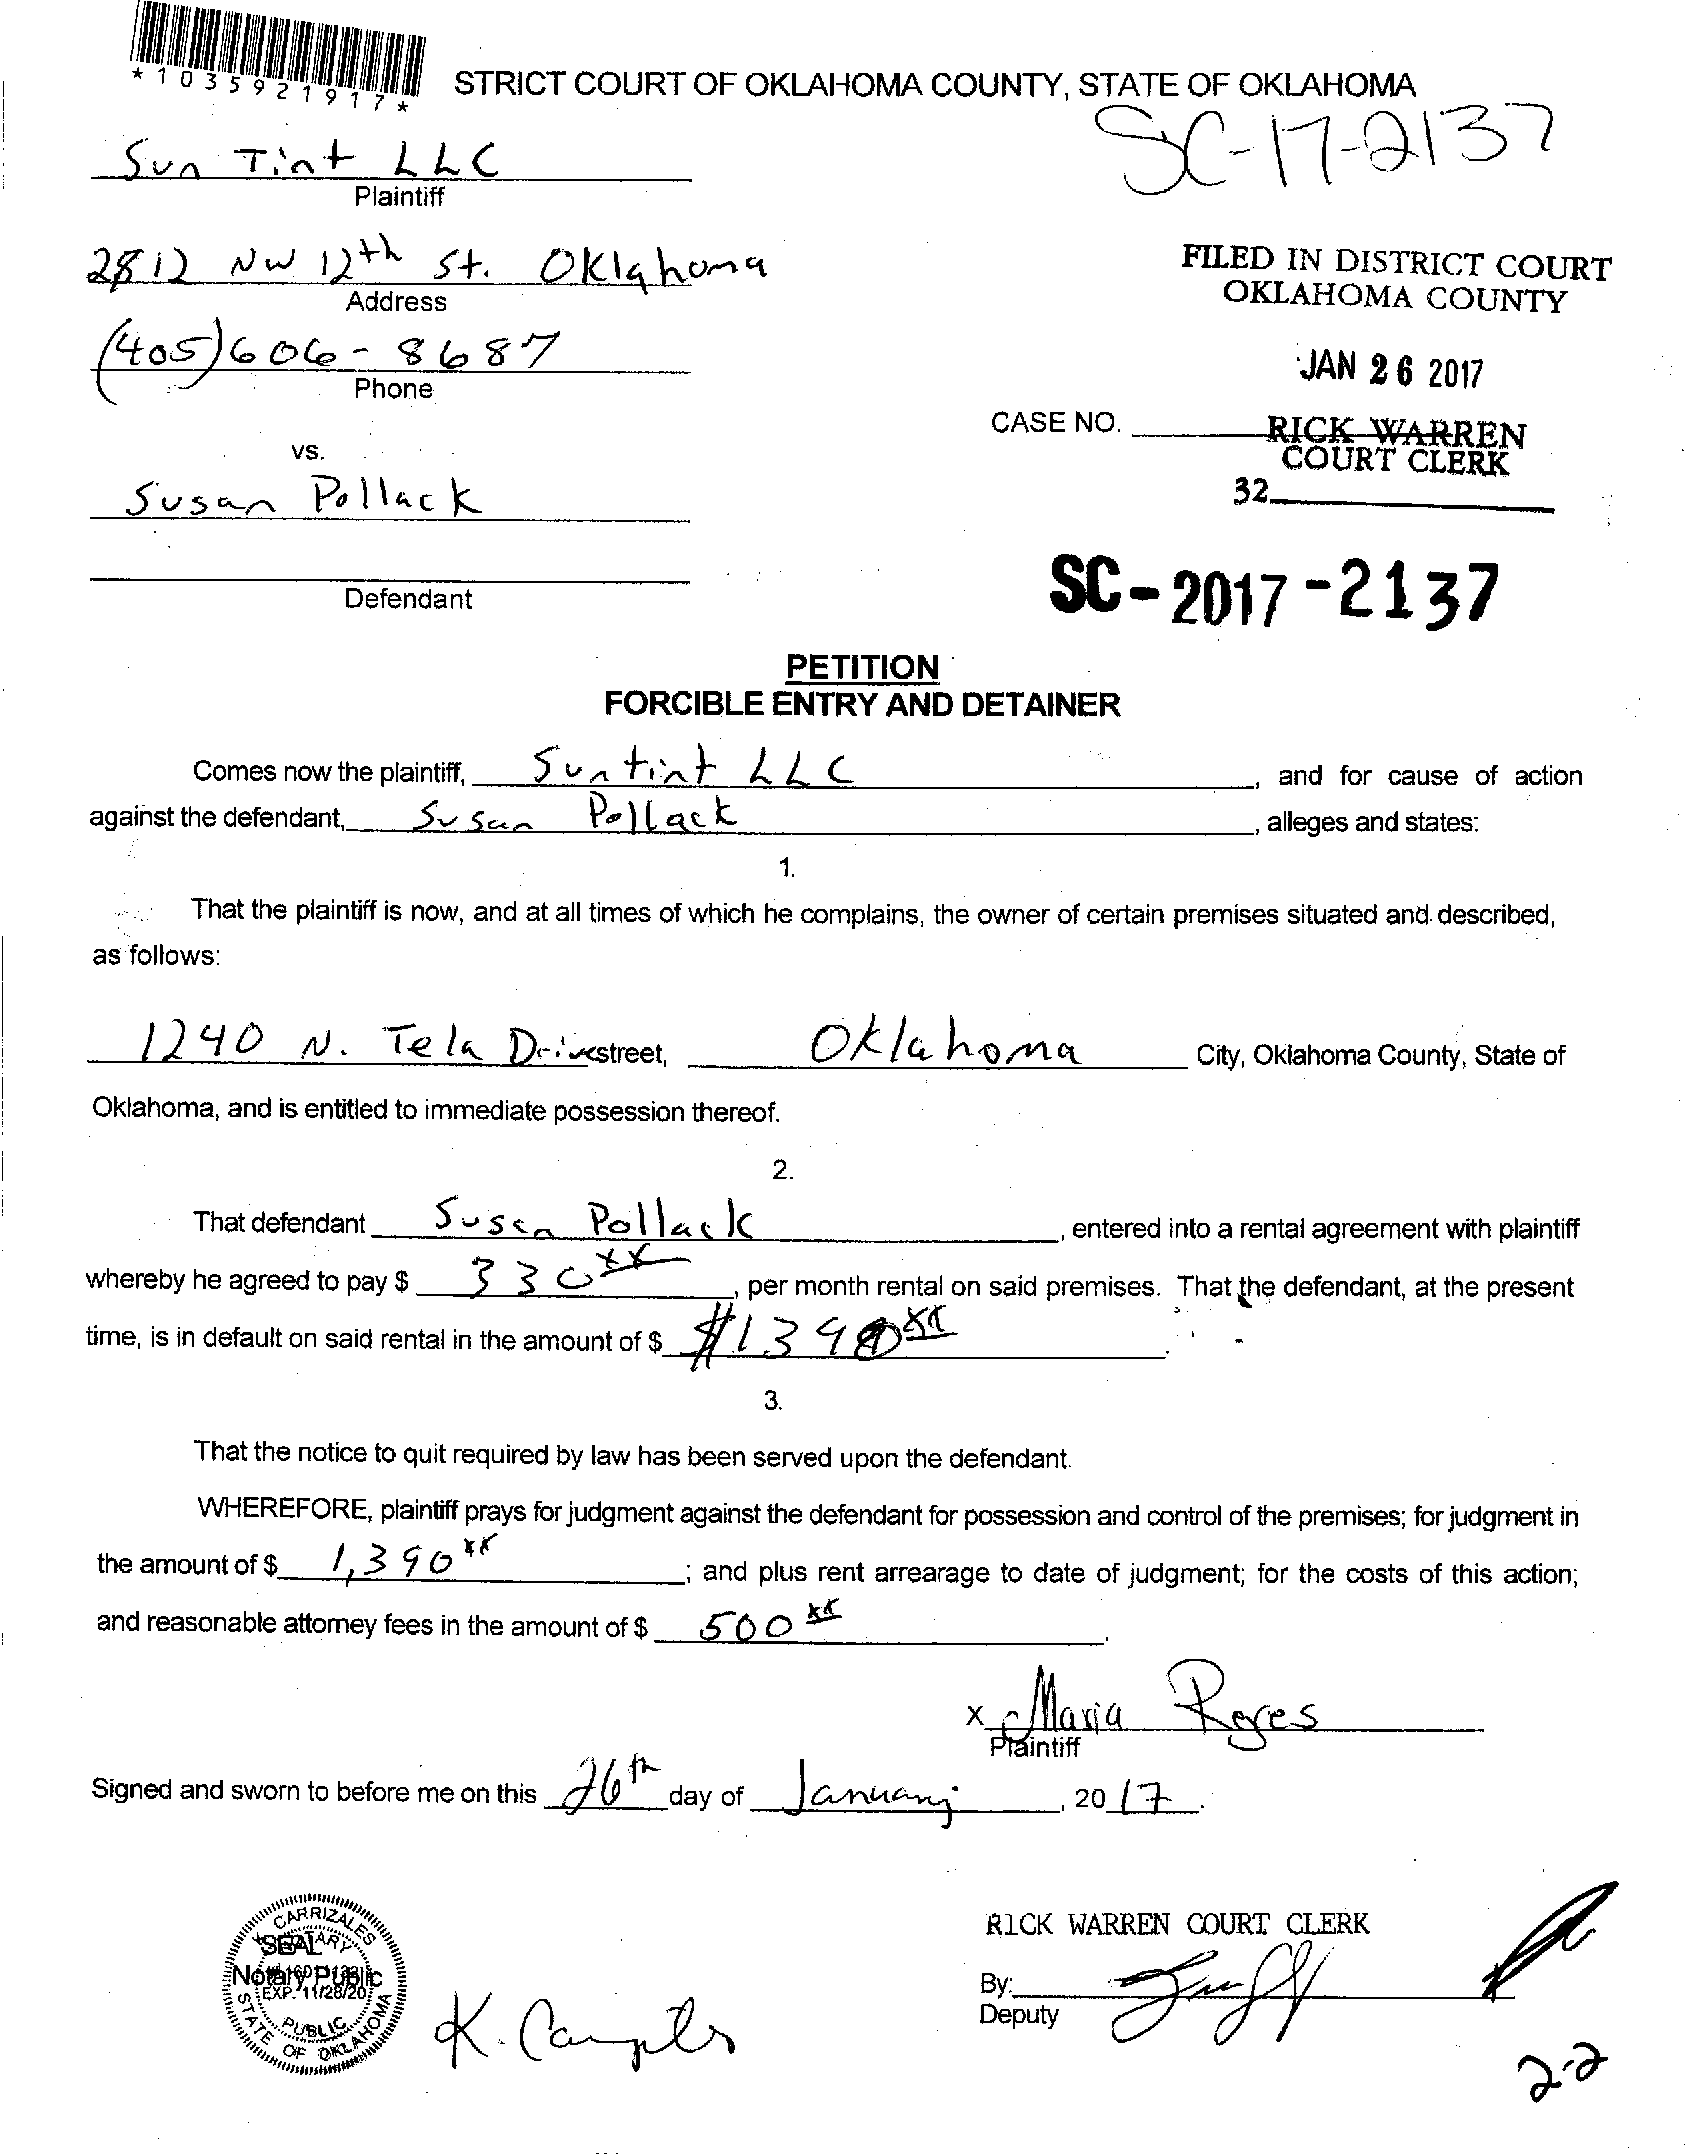 *1035921917*
STRICT COURT OF OKLAHOMA COUNTY, STATE OF OKLAHOMA
SC-17-2137
Sun Tint LLC
Plaintiff
2812 NW 12th St. Oklahoma
Address
FILED IN DISTRICT COURT
OKLAHOMA COUNTY
(405)606-8687
Phone
JAN 26 2017
CASE NO.
RICK WARREN
COURT CLERK
32
vs.
Susan Pollack
Defendant
SC-2017-2137
PETITION
FORCIBLE ENTRY AND DETAINER
Comes now the plaintiff, Suntint LLC, and for cause of action
against the defendant, Susan Pollack, alleges and states:
1.
That the plaintiff is now, and at all times of which he complains, the owner of certain premises situated and described,
as follows:
1240 N. Tela Drive street, Oklahoma City, Oklahoma County, State of
Oklahoma, and is entitled to immediate possession thereof.
2.
That defendant Susan Pollack, entered into a rental agreement with plaintiff
whereby he agreed to pay $ 330xx, per month rental on said premises. That the defendant, at the present
time, is in default on said rental in the amount of $ $1390xx.
3.
That the notice to quit required by law has been served upon the defendant.
WHEREFORE, plaintiff prays for judgment against the defendant for possession and control of the premises; for judgment in
the amount of $ 1,390xx; and plus rent arrearage to date of judgment; for the costs of this action;
and reasonable attorney fees in the amount of $ 500xx.
x Maria Reyes
Plaintiff
Signed and sworn to before me on this 26th day of January, 2017.
CARRIZALES
SEAL
Notary Public
EXP. 11/28/20
PUBLIC
STATE OF OKLAHOMA
RICK WARREN COURT CLERK
By:
Deputy
2-2